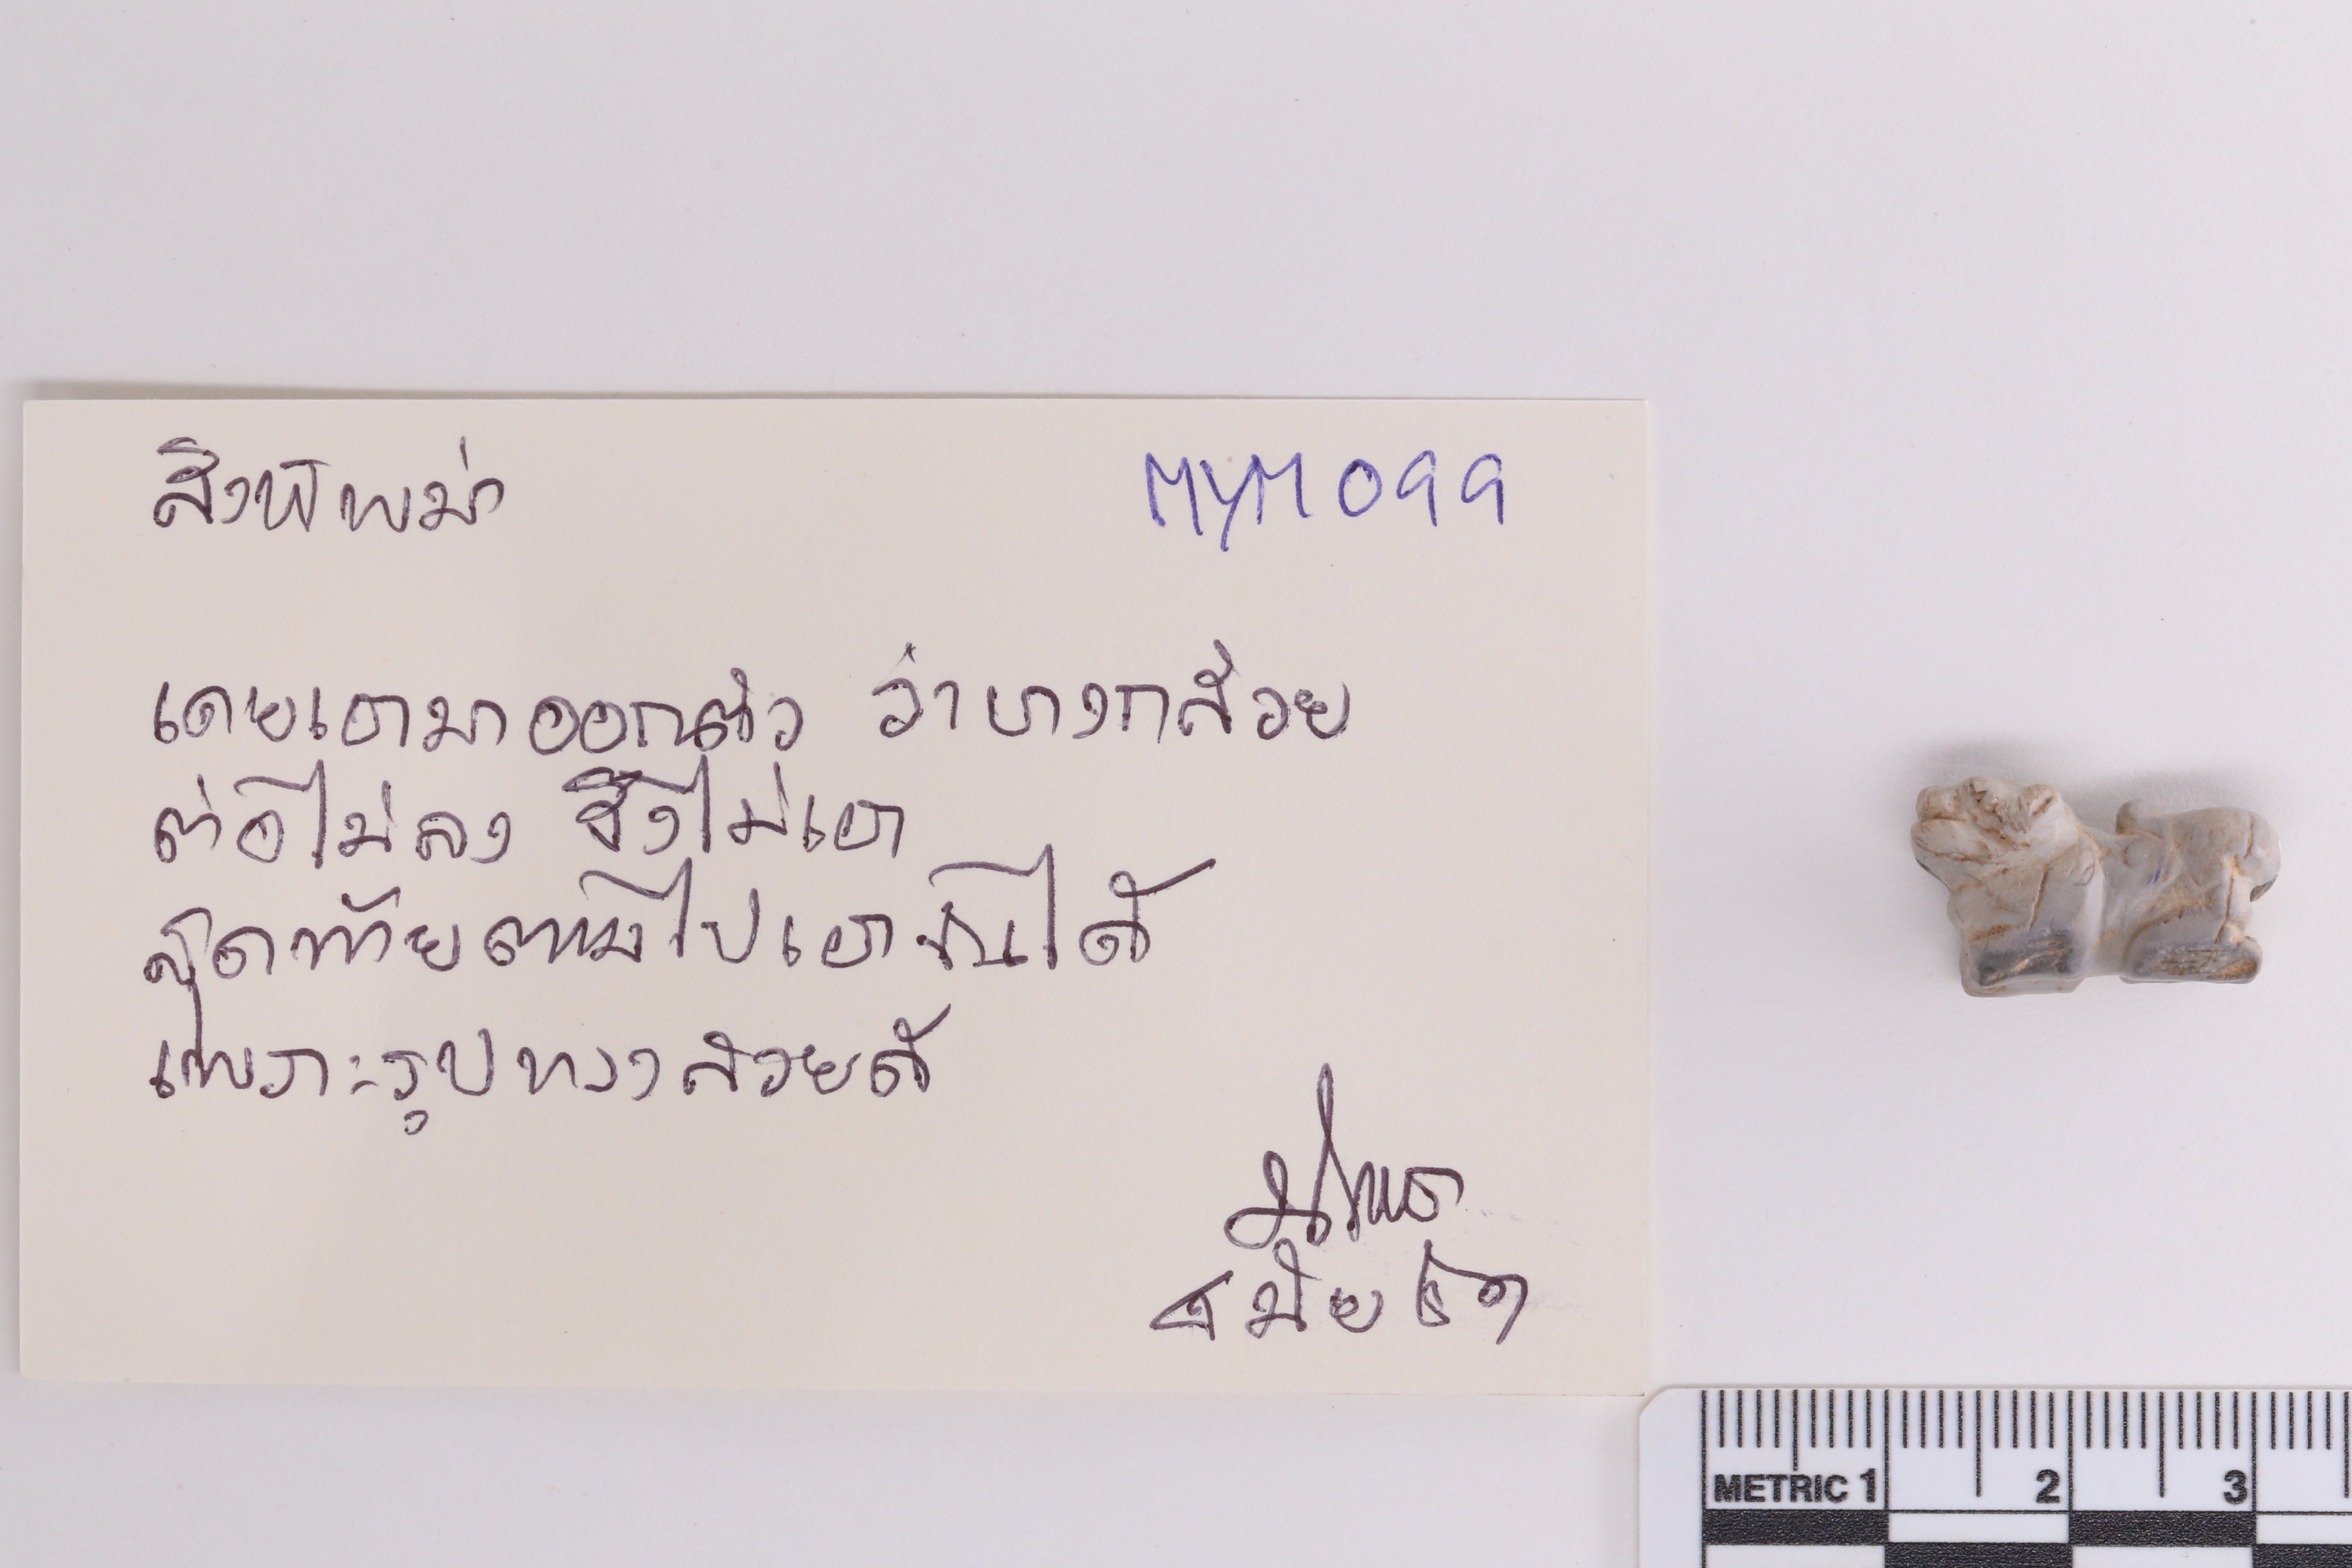 สิงห์พม่า
MYM099
เคยเอามาออกตัว ว่าบางกล้วย
ต่อไม่ลง จึงไม่เอา
สุดท้ายตามไปเอาจนได้
เพราะรูปทรงสวยดี
METRIC 1 2 3